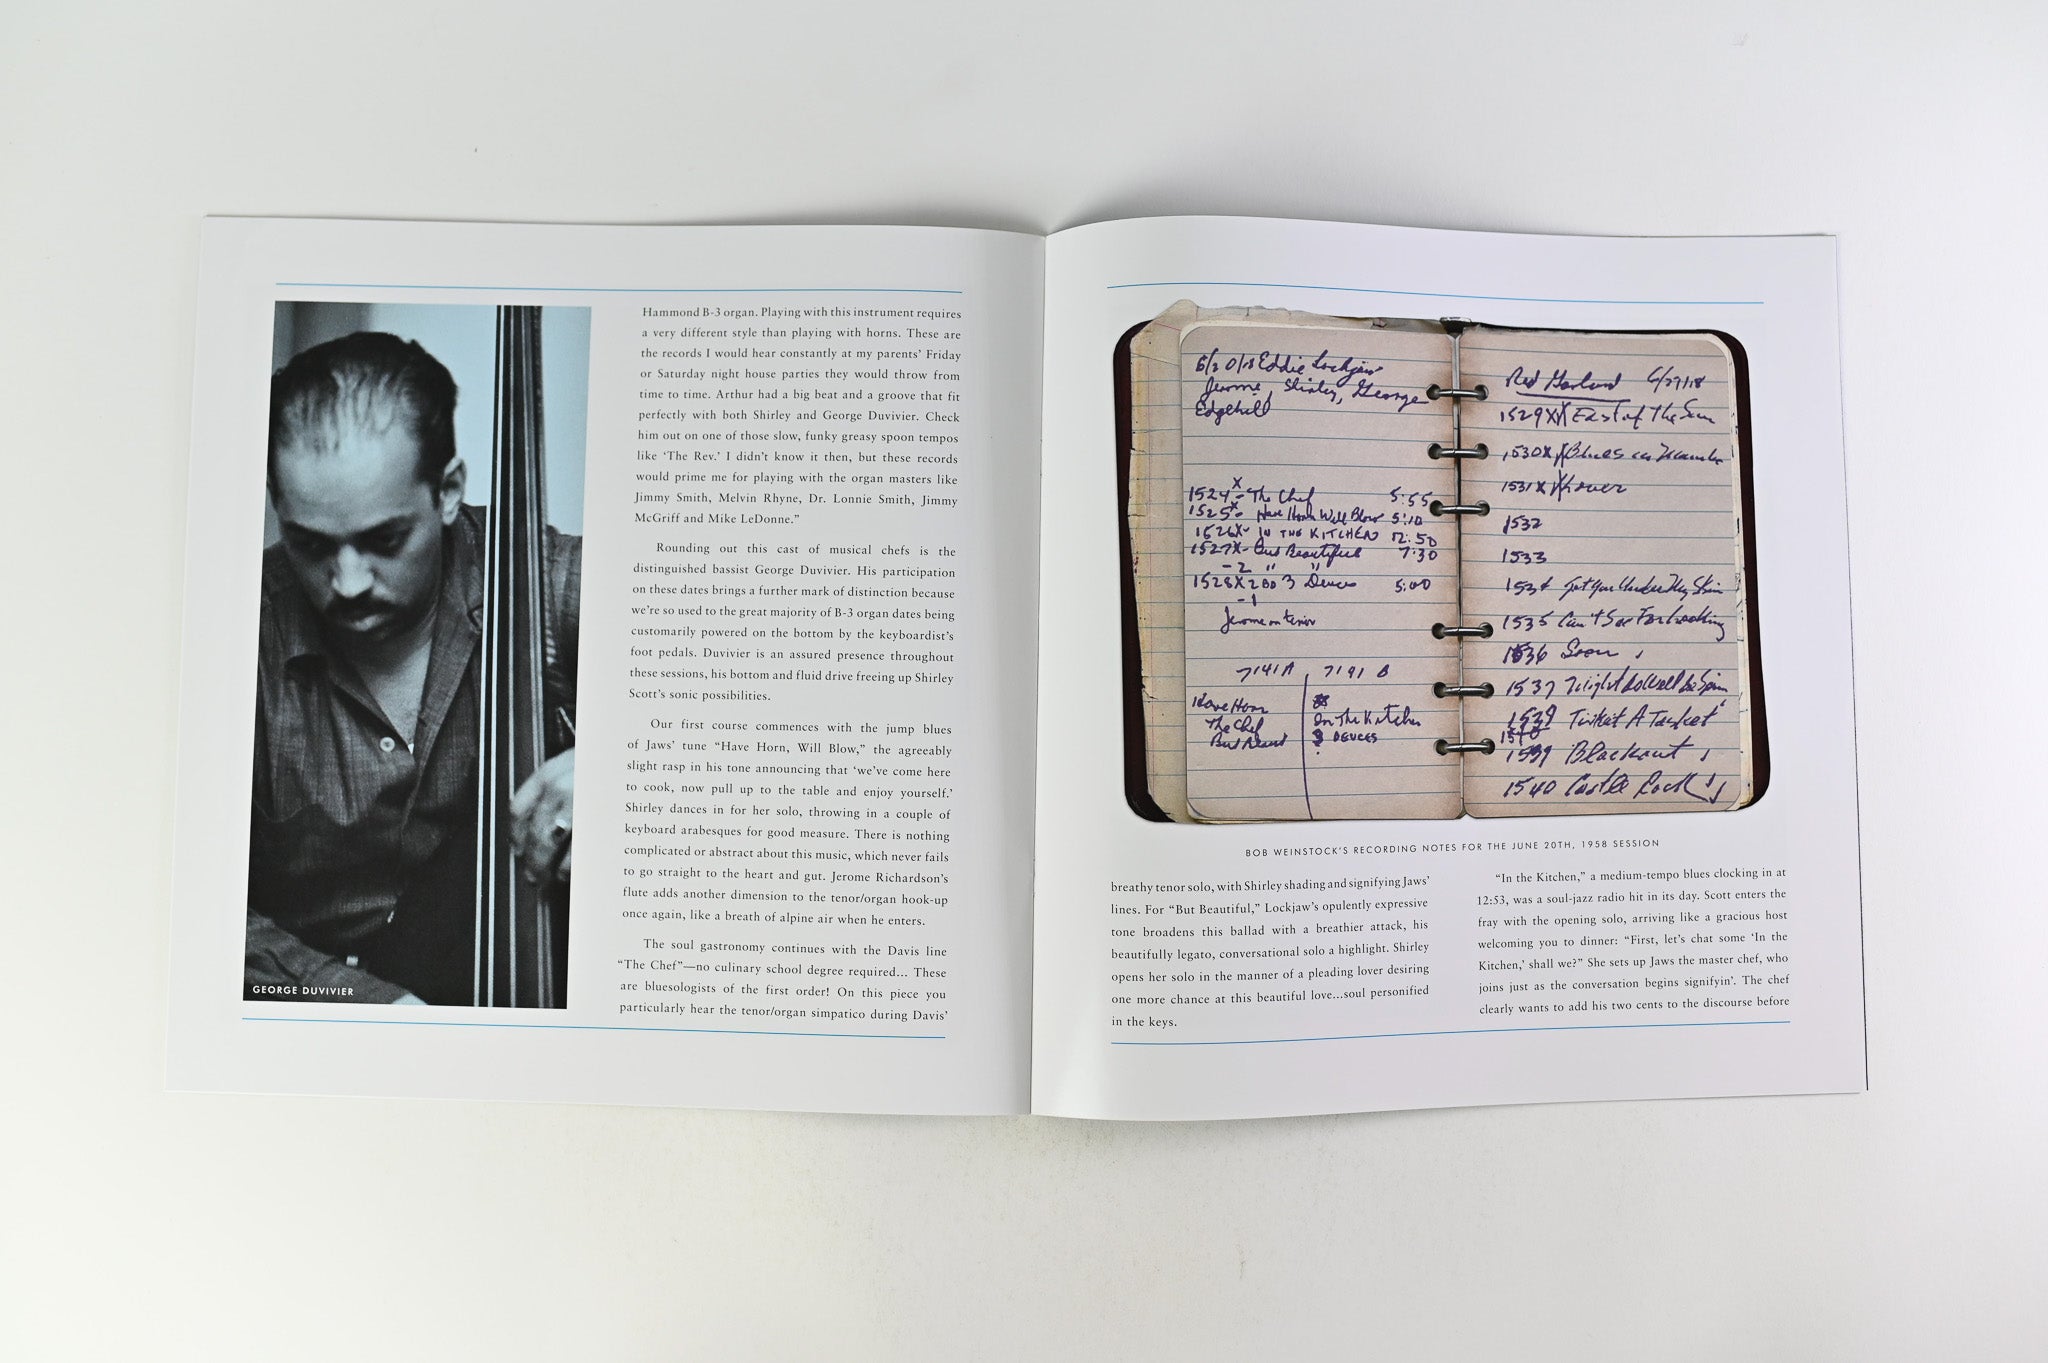 Hammond B-3 organ. Playing with this instrument requires
a very different style than playing with horns. These are
the records I would hear constantly at my parents' Friday
or Saturday night house parties they would throw from
time to time. Arthur had a big beat and a groove that fit
perfectly with both Shirley and George Duvivier. Check
him out on one of those slow, funky greasy spoon tempos
like 'The Rev.' I didn't know it then, but these records
would prime me for playing with the organ masters like
Jimmy Smith, Melvin Rhyne, Dr. Lonnie Smith, Jimmy
McGriff and Mike LeDonne."
Rounding out this cast of musical chefs is the
distinguished bassist George Duvivier. His participation
on these dates brings a further mark of distinction because
we're so used to the great majority of B-3 organ dates being
customarily powered on the bottom by the keyboardist's
foot pedals. Duvivier is an assured presence throughout
these sessions, his bottom and fluid drive freeing up Shirley
Scott's sonic possibilities.
Our first course commences with the jump blues
of Jaws' tune "Have Horn, Will Blow," the agreeably
slight rasp in his tone announcing that 'we've come here
to cook, now pull up to the table and enjoy yourself.'
Shirley dances in for her solo, throwing in a couple of
keyboard arabesques for good measure. There is nothing
complicated or abstract about this music, which never fails
to go straight to the heart and gut. Jerome Richardson's
flute adds another dimension to the tenor/organ hook-up
once again, like a breath of alpine air when he enters.
The soul gastronomy continues with the Davis line
"The Chef"—no culinary school degree required... These
are bluesologists of the first order! On this piece you
particularly hear the tenor/organ simpatico during Davis'
GEORGE DUVIVIER
Eddie Lockjaw
Jerome, Shirley, George
Edgehill
1524 X - The Chef 5:55
1525 X - Have Horn Will Blow 5:10
1526X - IN THE KITCHEN 12:50
1527X - But Beautiful 7:30
-2 " "
1528X 3 Deuces 5:00
-1
Jerome on tenor
7141 A 7191 B
Have Horn In The Kitchen
The Chef 3 DEUCES
But Beaut
Red Garland
1529XX East of The Sun
1530X Blues in
1531X
1532
1533
1534 Got You Under My Skin
1535 Can't See For Looking
1536 Soon
1537
Tisket A Tasket
Blackout
1540 Castle Rock
BOB WEINSTOCK'S RECORDING NOTES FOR THE JUNE 20TH, 1958 SESSION
breathy tenor solo, with Shirley shading and signifying Jaws'
lines. For "But Beautiful," Lockjaw's opulently expressive
tone broadens this ballad with a breathier attack, his
beautifully legato, conversational solo a highlight. Shirley
opens her solo in the manner of a pleading lover desiring
one more chance at this beautiful love...soul personified
in the keys.
"In the Kitchen," a medium-tempo blues clocking in at
12:53, was a soul-jazz radio hit in its day. Scott enters the
fray with the opening solo, arriving like a gracious host
welcoming you to dinner: "First, let's chat some 'In the
Kitchen,' shall we?" She sets up Jaws the master chef, who
joins just as the conversation begins signifyin'. The chef
clearly wants to add his two cents to the discourse before